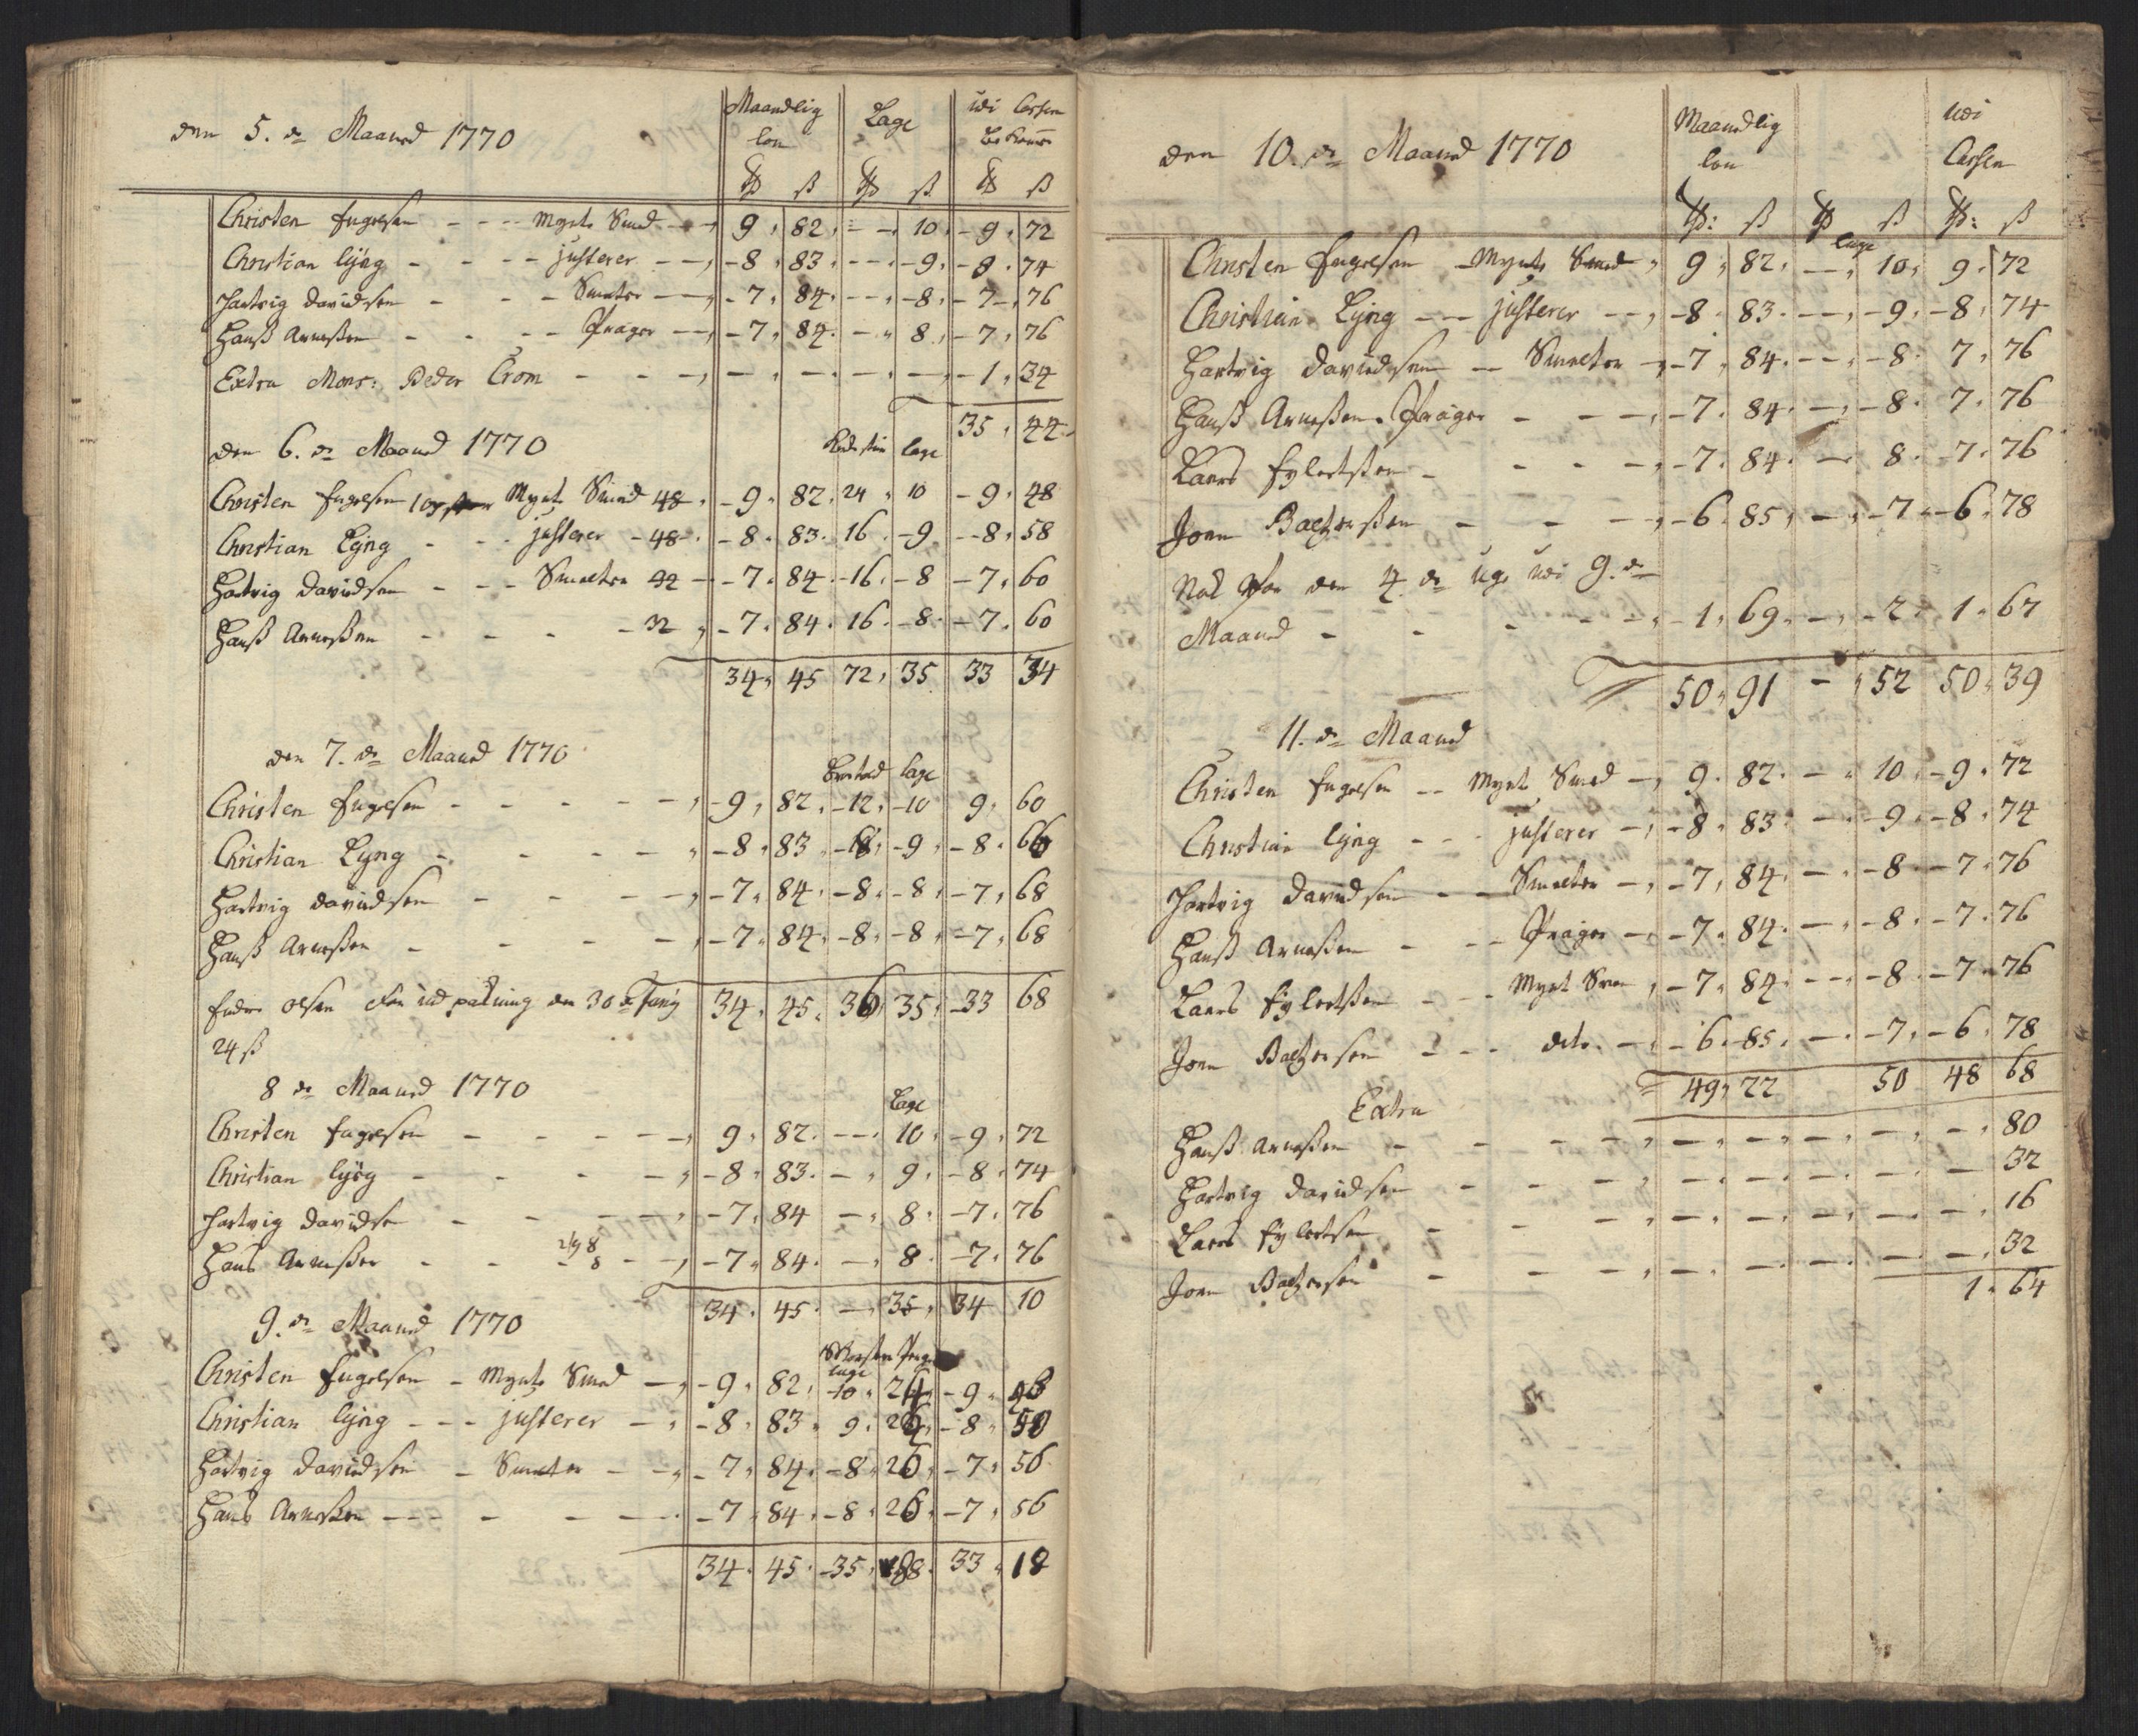 den 5. de Maaned 1770
Maandlig lön
Lage
udi Cassen
ß ß ß
Christen Engelsen - - - Mynt Smed - - 9 82 - - 10 - 9 72
Christian Lyng - - - - justerer - - 8 83 - - 9 - 8 74
Hartvig Davidsen - - - Smelter - - 7 84 - - 8 - 7 76
Hanß Arneßen - - - - Præger - - 7 84 - - 8 - 7 76
Extra Mons: Peder Crom - - - - - - - - - 1 34
35 44
den 6. de Maaned 1770
lage
Christen Engelsen Mynt Smed 48 - 9 82 24 10 - 9 48
Christian Lyng - - - justerer - 48 - 8 83 16 - 9 - 8 58
Hartvig Davidsen - - - Smelter - 7 84 - 16 - 8 - 7 60
Hanß Arneßen - - - - 32 - 7 84 16 - 8 - 7 60
34 45 72 35 33 34
den 7. de Maaned 1770
lage
Christen Engelsen - - - - - 9 82 - 12 - 10 9 60
Christian Lyng - - - - - 8 83 - 8 - 9 - 8 66
Hartvig Davidsen - - - - - 7 84 - 8 - 8 - 7 68
Hanß Arneßen - - - - - 7 84 - 8 - 8 - 7 68
Olsen den 30 34 45 36 35 33 68
24 ß
8 de Maaned 1770
Lage
Christen Engelsen - - - - - 9 82 - - 10 - 9 72
Christian Lyng - - - - - 8 83 - 9 - 8 74
Hartvig Davidse - - - - - 7 84 - 8 - 7 76
Hans Arneßen - - - - 7 84 - 8 - 7 76
34 45 - 35 34 10
9. de Maaned 1770
lage
Christen Engelsen - Mynt Smed - - 9 82 - 10 24 - 9 48
Christian Lyng - - - justerer - - 8 83 9 24 - 8 50
Hartvig Davidsen - Smelter - - - 7 84 - 8 20 - 7 56
Hans Arneßen - - - - - - 7 84 - 8 20 - 7 56
34 45 - 35 88 33 18
den 10. de Maaned 1770
Maandlig lön
udi Cassen
ß ß ß
lage
Christen Engelsen - Mynt Smed 9 82 - 10 9 72
Christian Lyng - - justerer - - 8 83 - - 9 - 8 74
Hartvig Davidsen - Smelter - 7 84 - - 8 7 76
Hanß Arneßen Præger - - - 7 84 - - 8 7 76
Laers Eylertßen - - - - - 7 84 - 8 - 7 76
Jonn Baltzerßen - - - - 6 85 - - 7 - 6 78
Nok for den 4 de uge udi 9. de
Maaned - - - - - 1 69 - - 2 1 67
50 91 - 52 50 39
11. de Maaned
Christen Engelsen - - Mynt Smed - 9 82 - 10 - 9 72
Christian Lyng - - justerer - - 8 83 - - 9 - 8 74
Hartvig Davidsen - - Smelter - - 7 84 - - 8 - 7 76
Hanß Arneßen - - Præger - - 7 84 - - 8 - 7 76
Laers Eylertßen - - Mynt - 7 84 - - 8 - 7 76
Jonn Baltzersen - - - dito - - 6 85 - - 7 - 6 78
49 22 50 48 68
Extra
Hanß Arneßen - - - - - - - - - 80
Hartvig Davidsen - - - - - - - - - 32
Laers Eylertsen - - - - - - - - - 16
Jonn Baltzersen - - - - - - - - - 32
1 64